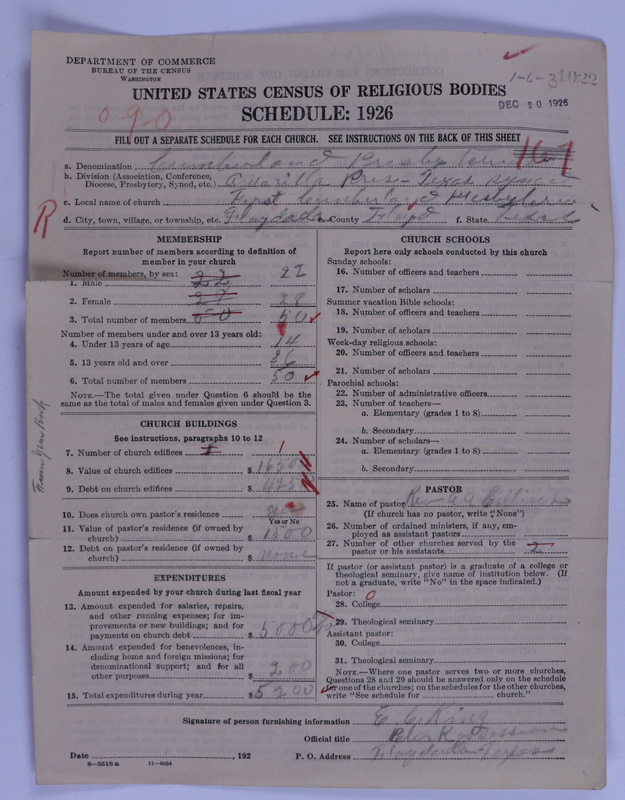 DEPARTMENT OF COMMERCE
BUREAU OF THE CENSUS
WASHINGTON
UNITED STATES CENSUS OF RELIGIOUS BODIES
SCHEDULE: 1926
DEC 20 1926
090
FILL OUT A SEPARATE SCHEDULE FOR EACH CHURCH. SEE INSTRUCTIONS ON THE BACK OF THIS SHEET
167
a. Denomination Cumberland Presbyterian
b. Division (Association, Conference, Diocese, Presbytery, Synod, etc.) Amarilla Pres- Texas Synod
c. Local name of church First Cumberland Presbyterian
R
d. City, town, village, or township, etc. Floydada e. County Floyd f. State Texas
MEMBERSHIP
Report number of members according to definition of member in your church
Number of members, by sex:
1. Male 22 22
2. Female 28
3. Total number of members 50 50
Number of members under and over 13 years old:
4. Under 13 years of age 14
5. 13 years old and over 36
6. Total number of members 50
NOTE.—The total given under Question 6 should be the same as the total of males and females given under Question 3.
From Year Book
CHURCH BUILDINGS
See instructions, paragraphs 10 to 12
7. Number of church edifices 1 1
8. Value of church edifices $
9. Debt on church edifices $
10. Does church own pastor's residence yes
Yes or No
11. Value of pastor's residence (if owned by church) $ 1500
12. Debt on pastor's residence (if owned by church) $ none
EXPENDITURES
Amount expended by your church during last fiscal year
13. Amount expended for salaries, repairs, and other running expenses; for improvements or new buildings; and for payments on church debt $ 5000
14. Amount expended for benevolences, including home and foreign missions; for denominational support; and for all other purposes $ 200
15. Total expenditures during year $ 5200
CHURCH SCHOOLS
Report here only schools conducted by this church
Sunday schools:
16. Number of officers and teachers
17. Number of scholars
Summer vacation Bible schools:
18. Number of officers and teachers
19. Number of scholars
Week-day religious schools:
20. Number of officers and teachers
21. Number of scholars
Parochial schools:
22. Number of administrative officers
23. Number of teachers—
a. Elementary (grades 1 to 8)
b. Secondary
24. Number of scholars—
a. Elementary (grades 1 to 8)
b. Secondary
PASTOR
25. Name of pastor Rev
(If church has no pastor, write "None")
26. Number of ordained ministers, if any, employed as assistant pastors
27. Number of other churches served by the pastor or his assistants 2
If pastor (or assistant pastor) is a graduate of a college or theological seminary, give name of institution below. (If not a graduate, write "No" in the space indicated.)
Pastor: 0
28. College
29. Theological seminary
Assistant pastor:
30. College
31. Theological seminary
NOTE.—Where one pastor serves two or more churches, Questions 28 and 29 should be answered only on the schedule for one of the churches; on the schedules for the other churches, write "See schedule for church."
Signature of person furnishing information E. C. King
Official title Clerk of Session
Date , 192 P. O. Address Floydada Texas
8—5518 a 11—9054